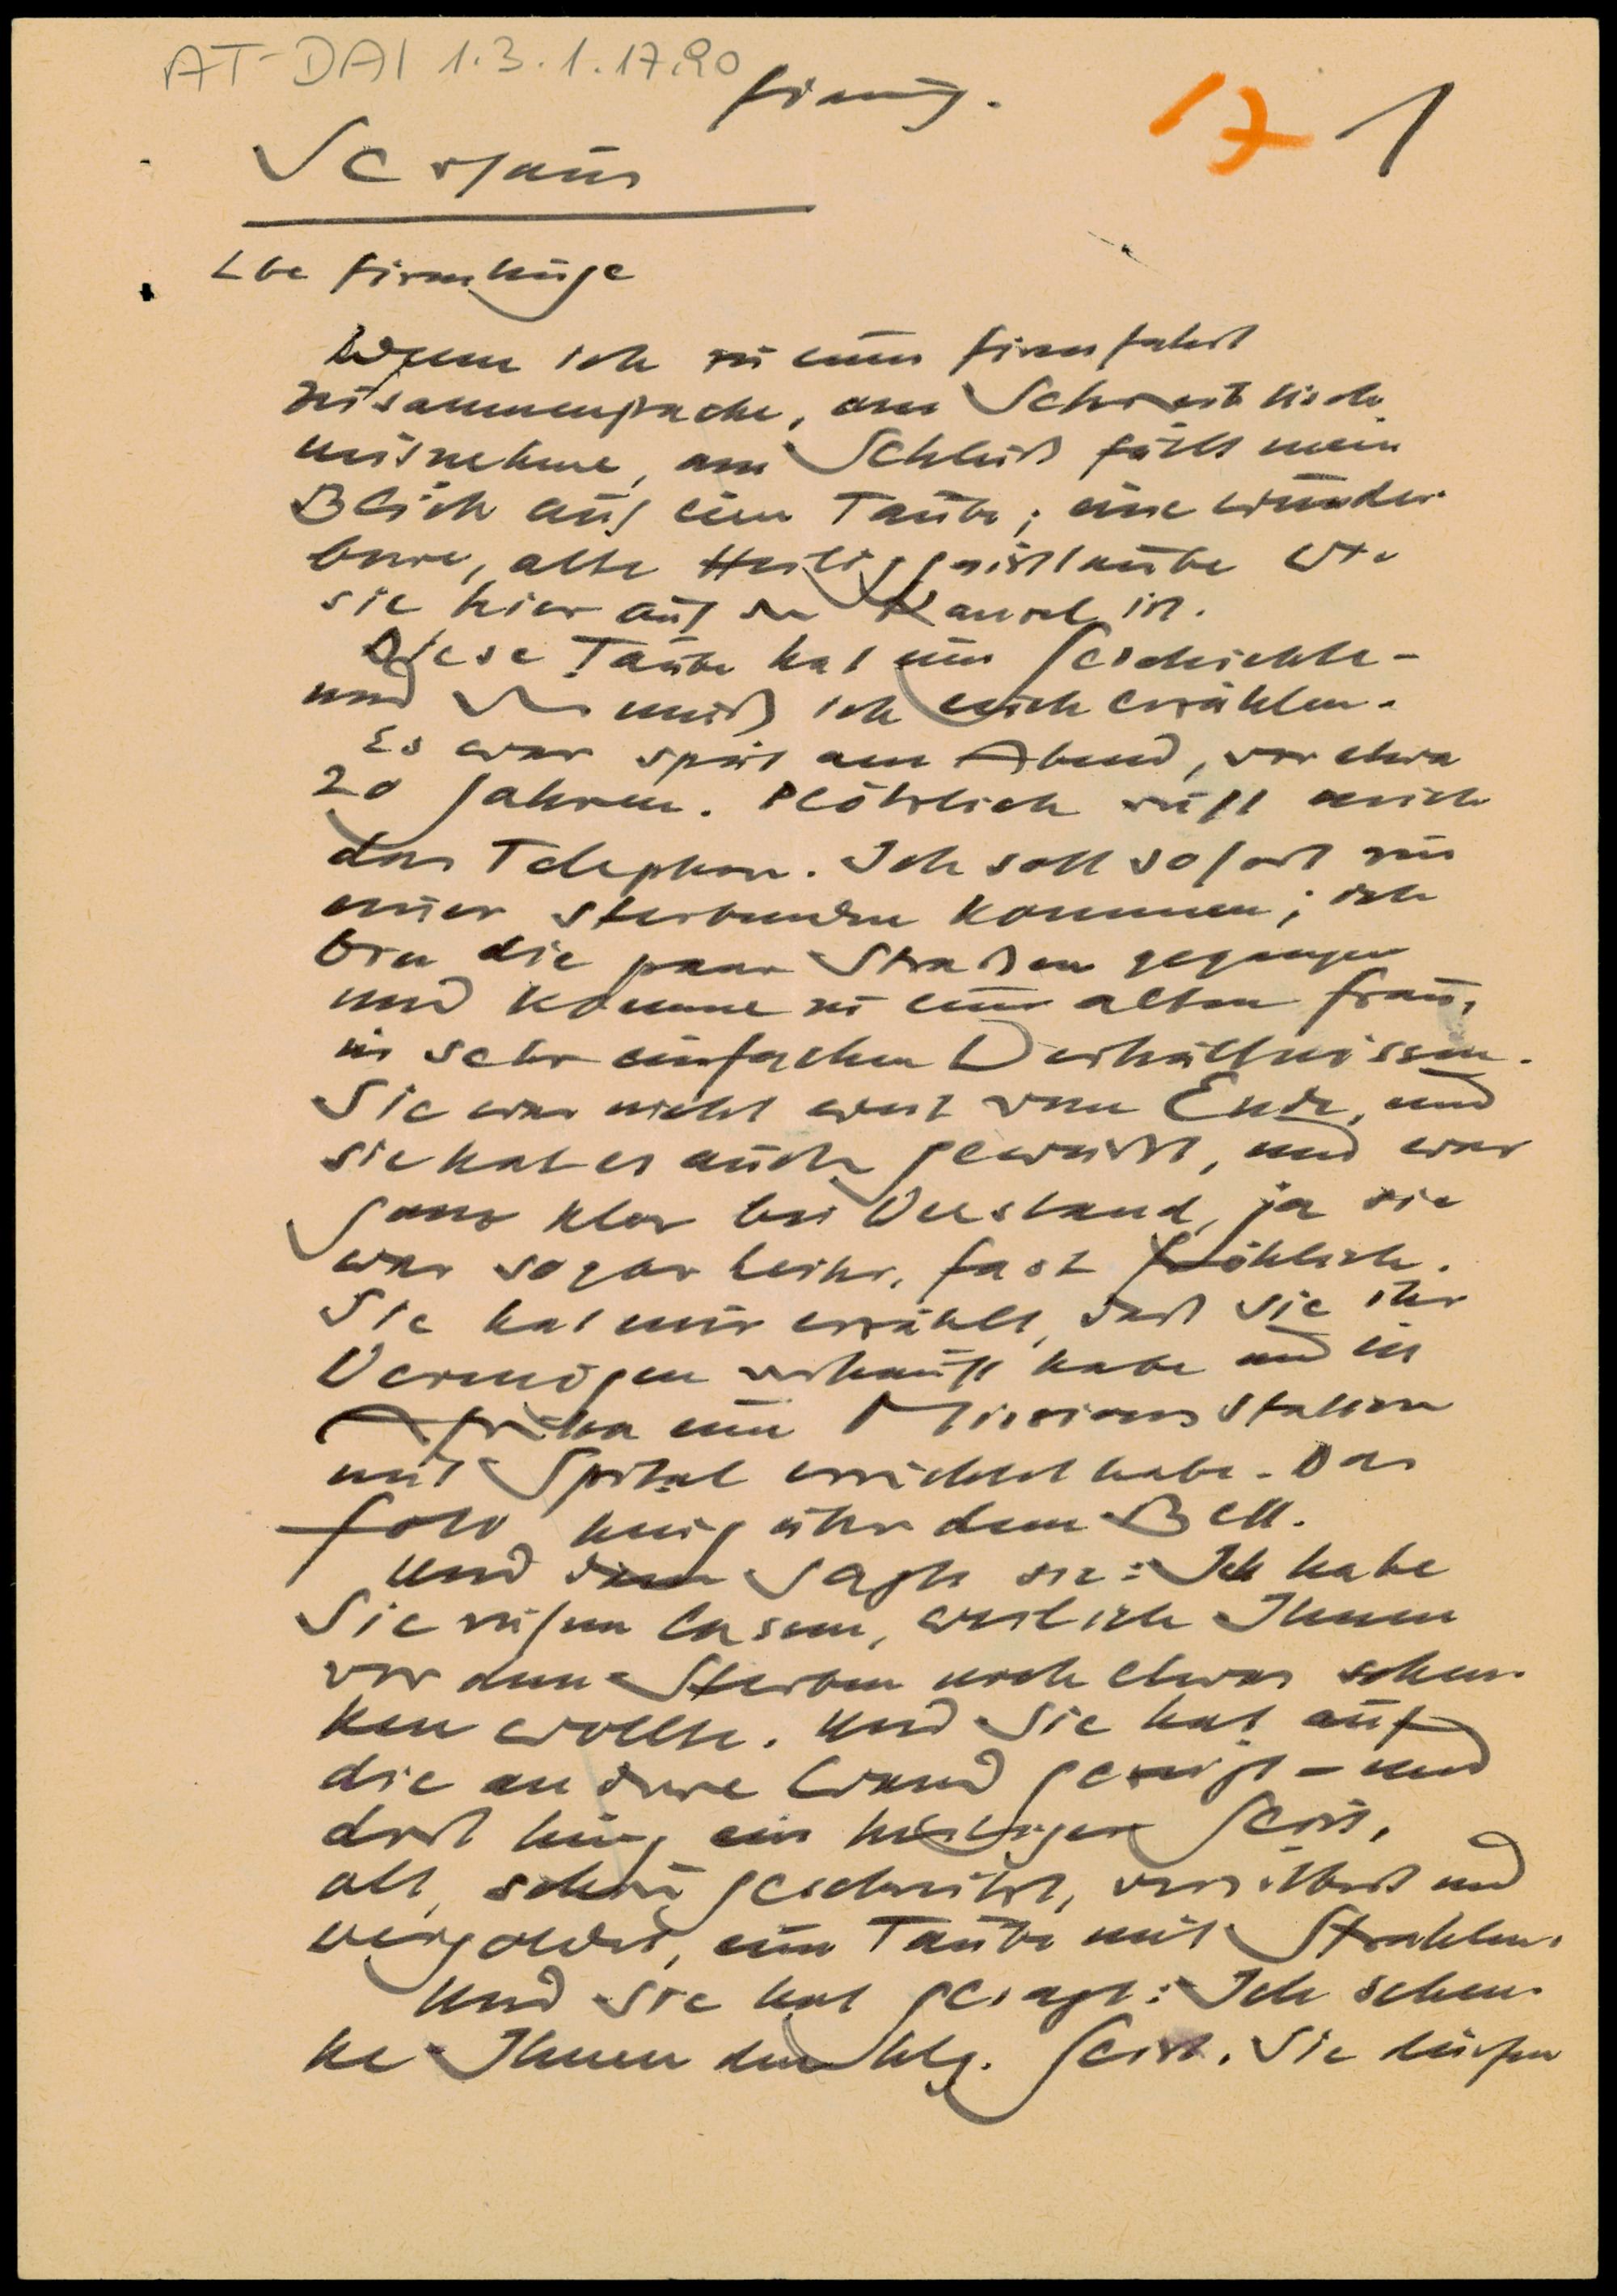 AT-DAI 1.3.1.17.90
Firmg.
17 1
Serfaus
Lbe Firmlinge
Wenn ich zu einer Firmfahrt
zusammenpacke, am Schreibtisch
mitnehme, am Schluß fällt mein
Blick auf eine Taube; eine wunder-
bare, alte Heiliggeisttaube wie
sie hier auf der Kanzel ist.
Diese Taube hat eine Geschichte -
und die muß ich euch erzählen.
Es war spät am Abend, vor etwa
20 Jahren. Plötzlich ruft mich
das Telephon. Ich soll sofort zu
einer Sterbenden kommen; ich
bin die paar Straßen gegangen
und komme zu einer alten Frau,
in sehr einfachen Verhältnissen.
Sie war nicht weit vom Ende, und
sie hat es auch gewußt, und war
ganz klar bei Verstand, ja sie
war sogar heiter, fast fröhlich.
Sie hat mir erzählt, daß sie ihr
Vermögen verkauft habe und in
Afrika eine Missionsstation
mit Spital errichtet habe. Das
Foto hing über dem Bett.
Und dann sagte sie: Ich habe
Sie rufen lassen, weil ich Ihnen
vor dem Sterben noch etwas schen-
ken wollte. Und Sie hat auf
die andere Wand gezeigt - und
dort hing ein heiliger Geist,
alt, schön geschnitzt, versilbert und
vergoldet, eine Taube mit Strahlen.
Und Sie hat gesagt: Ich schen-
ke Ihnen den hlg. Geist. Sie dürfen